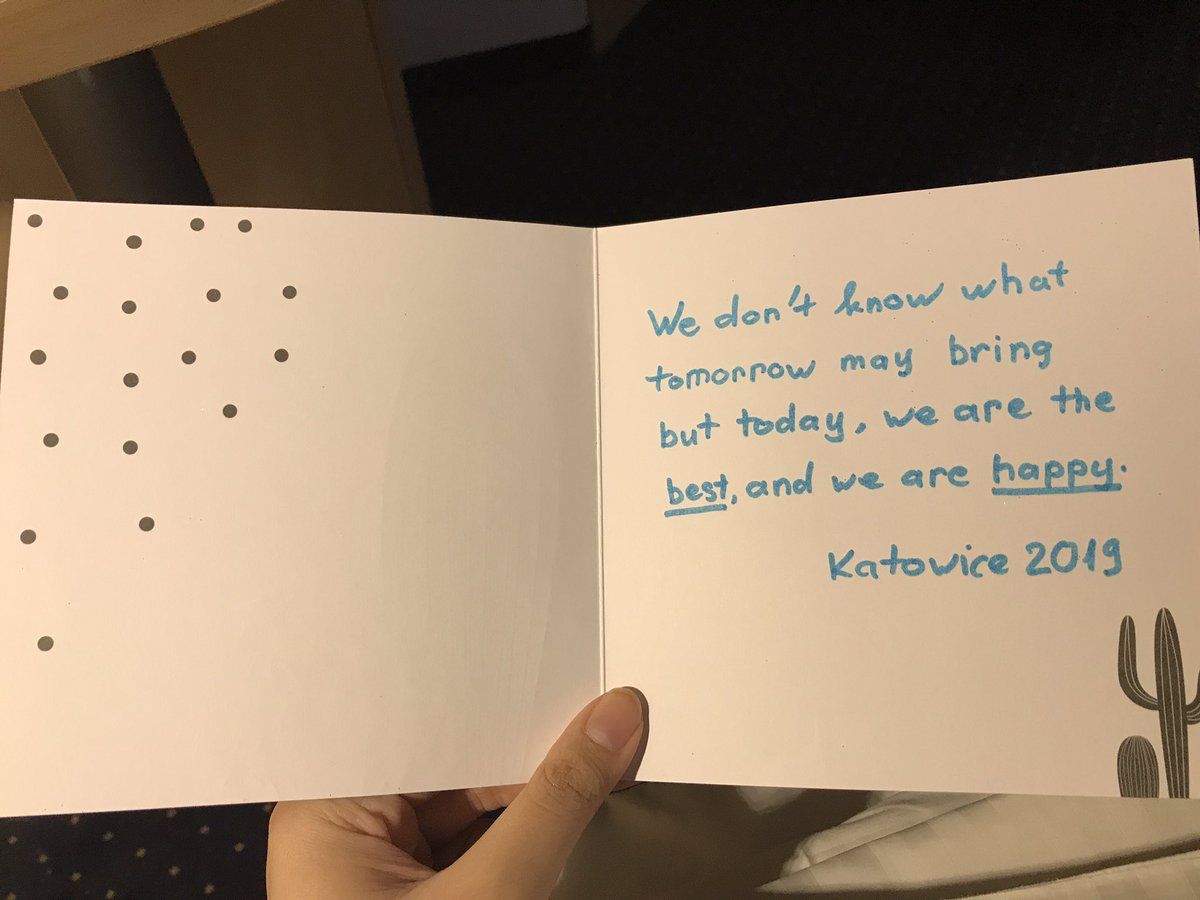 We don't know what
tomorrow may bring
but today, we are the
best, and we are happy.
Katowice 2019